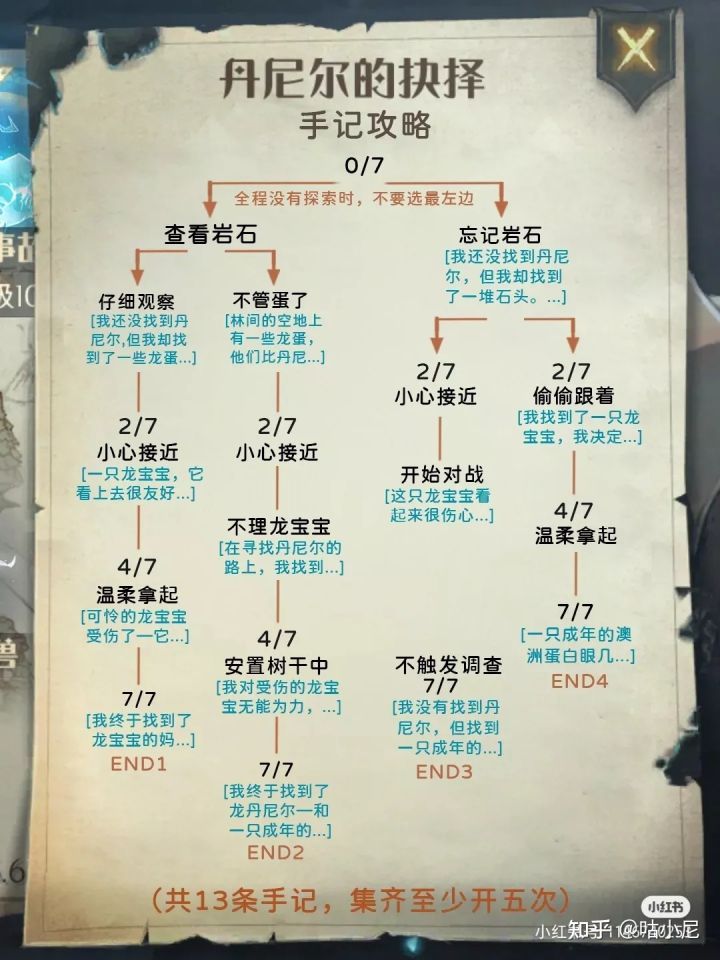 丹尼尔的抉择
手记攻略
0/7
全程没有探索时，不要选最左边
查看岩石
仔细观察
[我还没找到丹
尼尔,但我却找
到了一些龙蛋...]
2/7
小心接近
[一只龙宝宝，它
看上去很友好...]
4/7
温柔拿起
[可怜的龙宝宝
受伤了一它...]
7/7
[我终于找到了
龙宝宝的妈...]
END1
不管蛋了
[林间的空地上
有一些龙蛋，
他们比丹尼...]
2/7
小心接近
不理龙宝宝
[在寻找丹尼尔的
路上，我找到...]
4/7
安置树干中
[我对受伤的龙宝
宝无能为力，...]
7/7
[我终于找到了
龙丹尼尔一和
一只成年的...]
END2
忘记岩石
[我还没找到丹尼
尔，但我却找到
了一堆石头。...]
2/7
小心接近
开始对战
[这只龙宝宝看
起来很伤心...]
不触发调查
7/7
[我没有找到丹
尼尔，但找到
一只成年的...]
END3
2/7
偷偷跟着
[我找到了一只龙
宝宝，我决定...]
4/7
温柔拿起
7/7
[一只成年的澳
洲蛋白眼几...]
END4
（共13条手记，集齐至少开五次）
小红书
知乎 @咕小尼
事故
级10
兽
.6